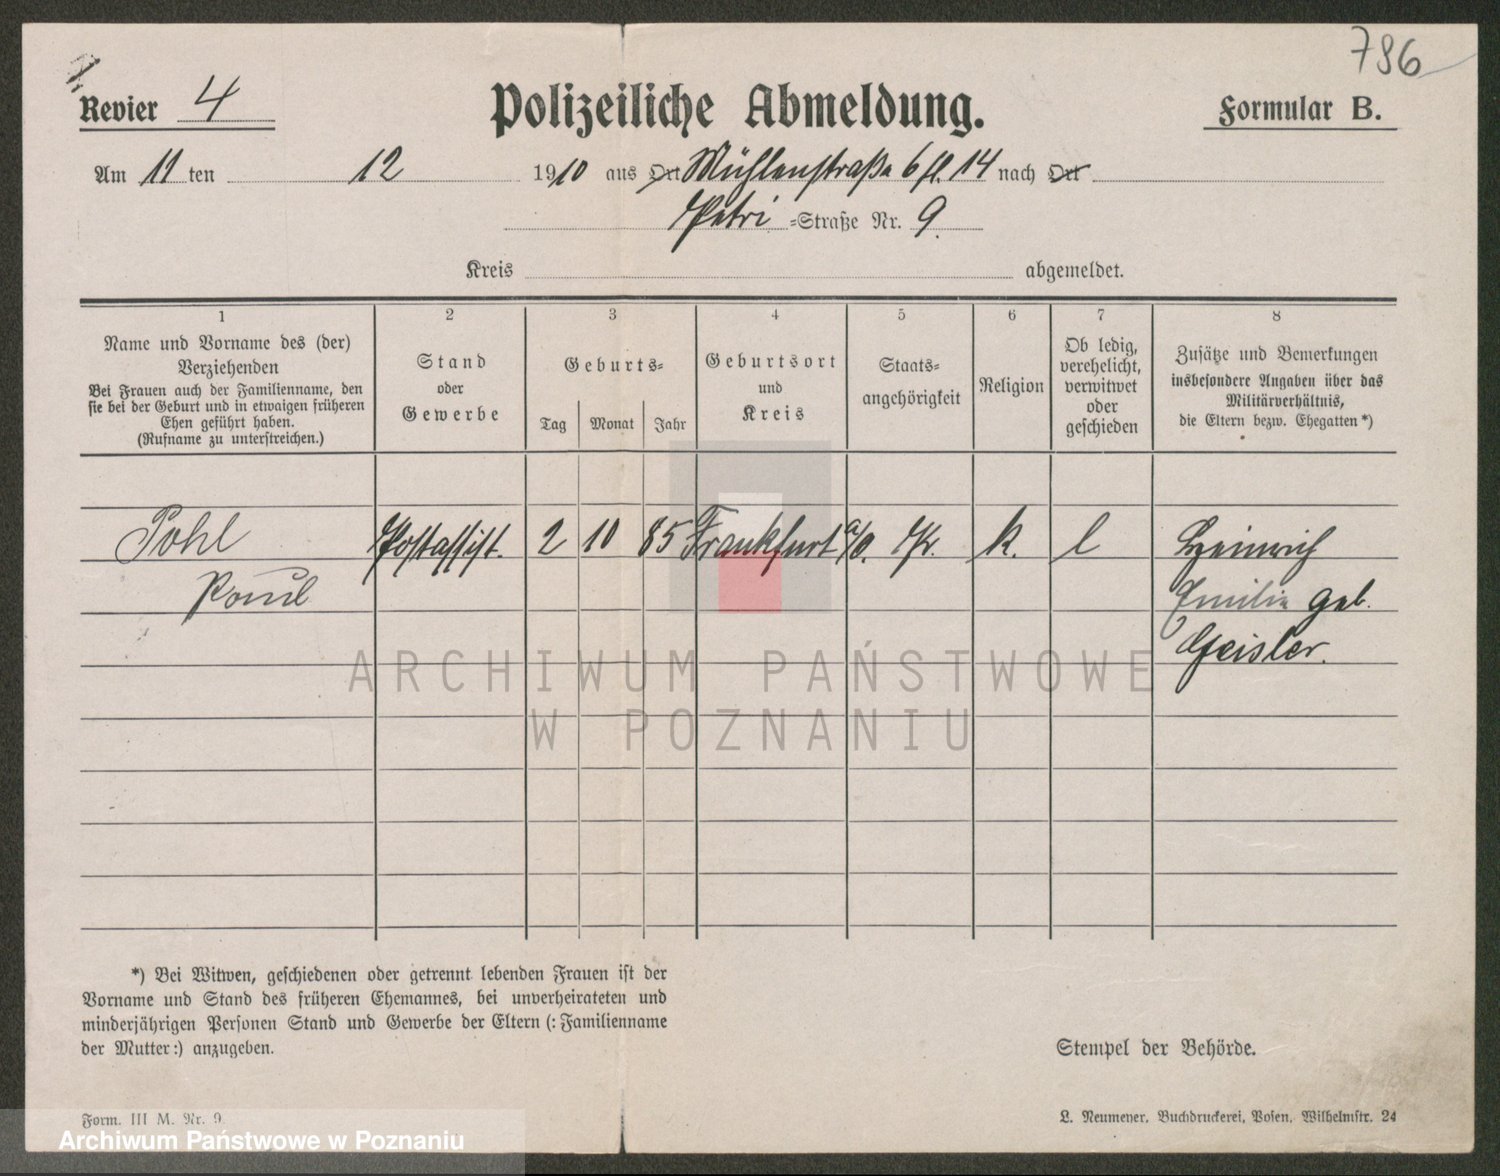 786
Revier 4
Polizeiliche Abmeldung.
Formular B.
Am 11 ten 12 1910 aus Ort Mühlenstraße 6 fl. 14 nach Ort
Petri -Straße Nr. 9.
Kreis abgemeldet.
1 2 3 4 5 6 7 8
Name und Vorname des (der)
Verziehenden
Bei Frauen auch der Familienname, den
sie bei der Geburt und in etwaigen früheren
Ehen geführt haben.
(Rufname zu unterstreichen.)
Stand
oder
Gewerbe
Geburts-
Tag Monat Jahr
Geburtsort
und
Kreis
Staats-
angehörigkeit
Religion
Ob ledig,
verehelicht,
verwitwet
oder
geschieden
Zusätze und Bemerkungen
insbesondere Angaben über das
Militärverhältnis,
die Eltern bezw. Ehegatten *)
Pohl Postassist. 2 10 85 Frankfurt a/O. Pr. k. l Heinrich
Paul Emilie geb.
Geisler.
ARCHIWUM PAŃSTWOWE
W POZNANIU
*) Bei Witwen, geschiedenen oder getrennt lebenden Frauen ist der
Vorname und Stand des früheren Ehemannes, bei unverheirateten und
minderjährigen Personen Stand und Gewerbe der Eltern (: Familienname
der Mutter:) anzugeben.
Stempel der Behörde.
Form. III M. Nr. 9.
L. Neumener, Buchdruckerei, Posen, Wilhelmstr. 24
Archiwum Państwowe w Poznaniu